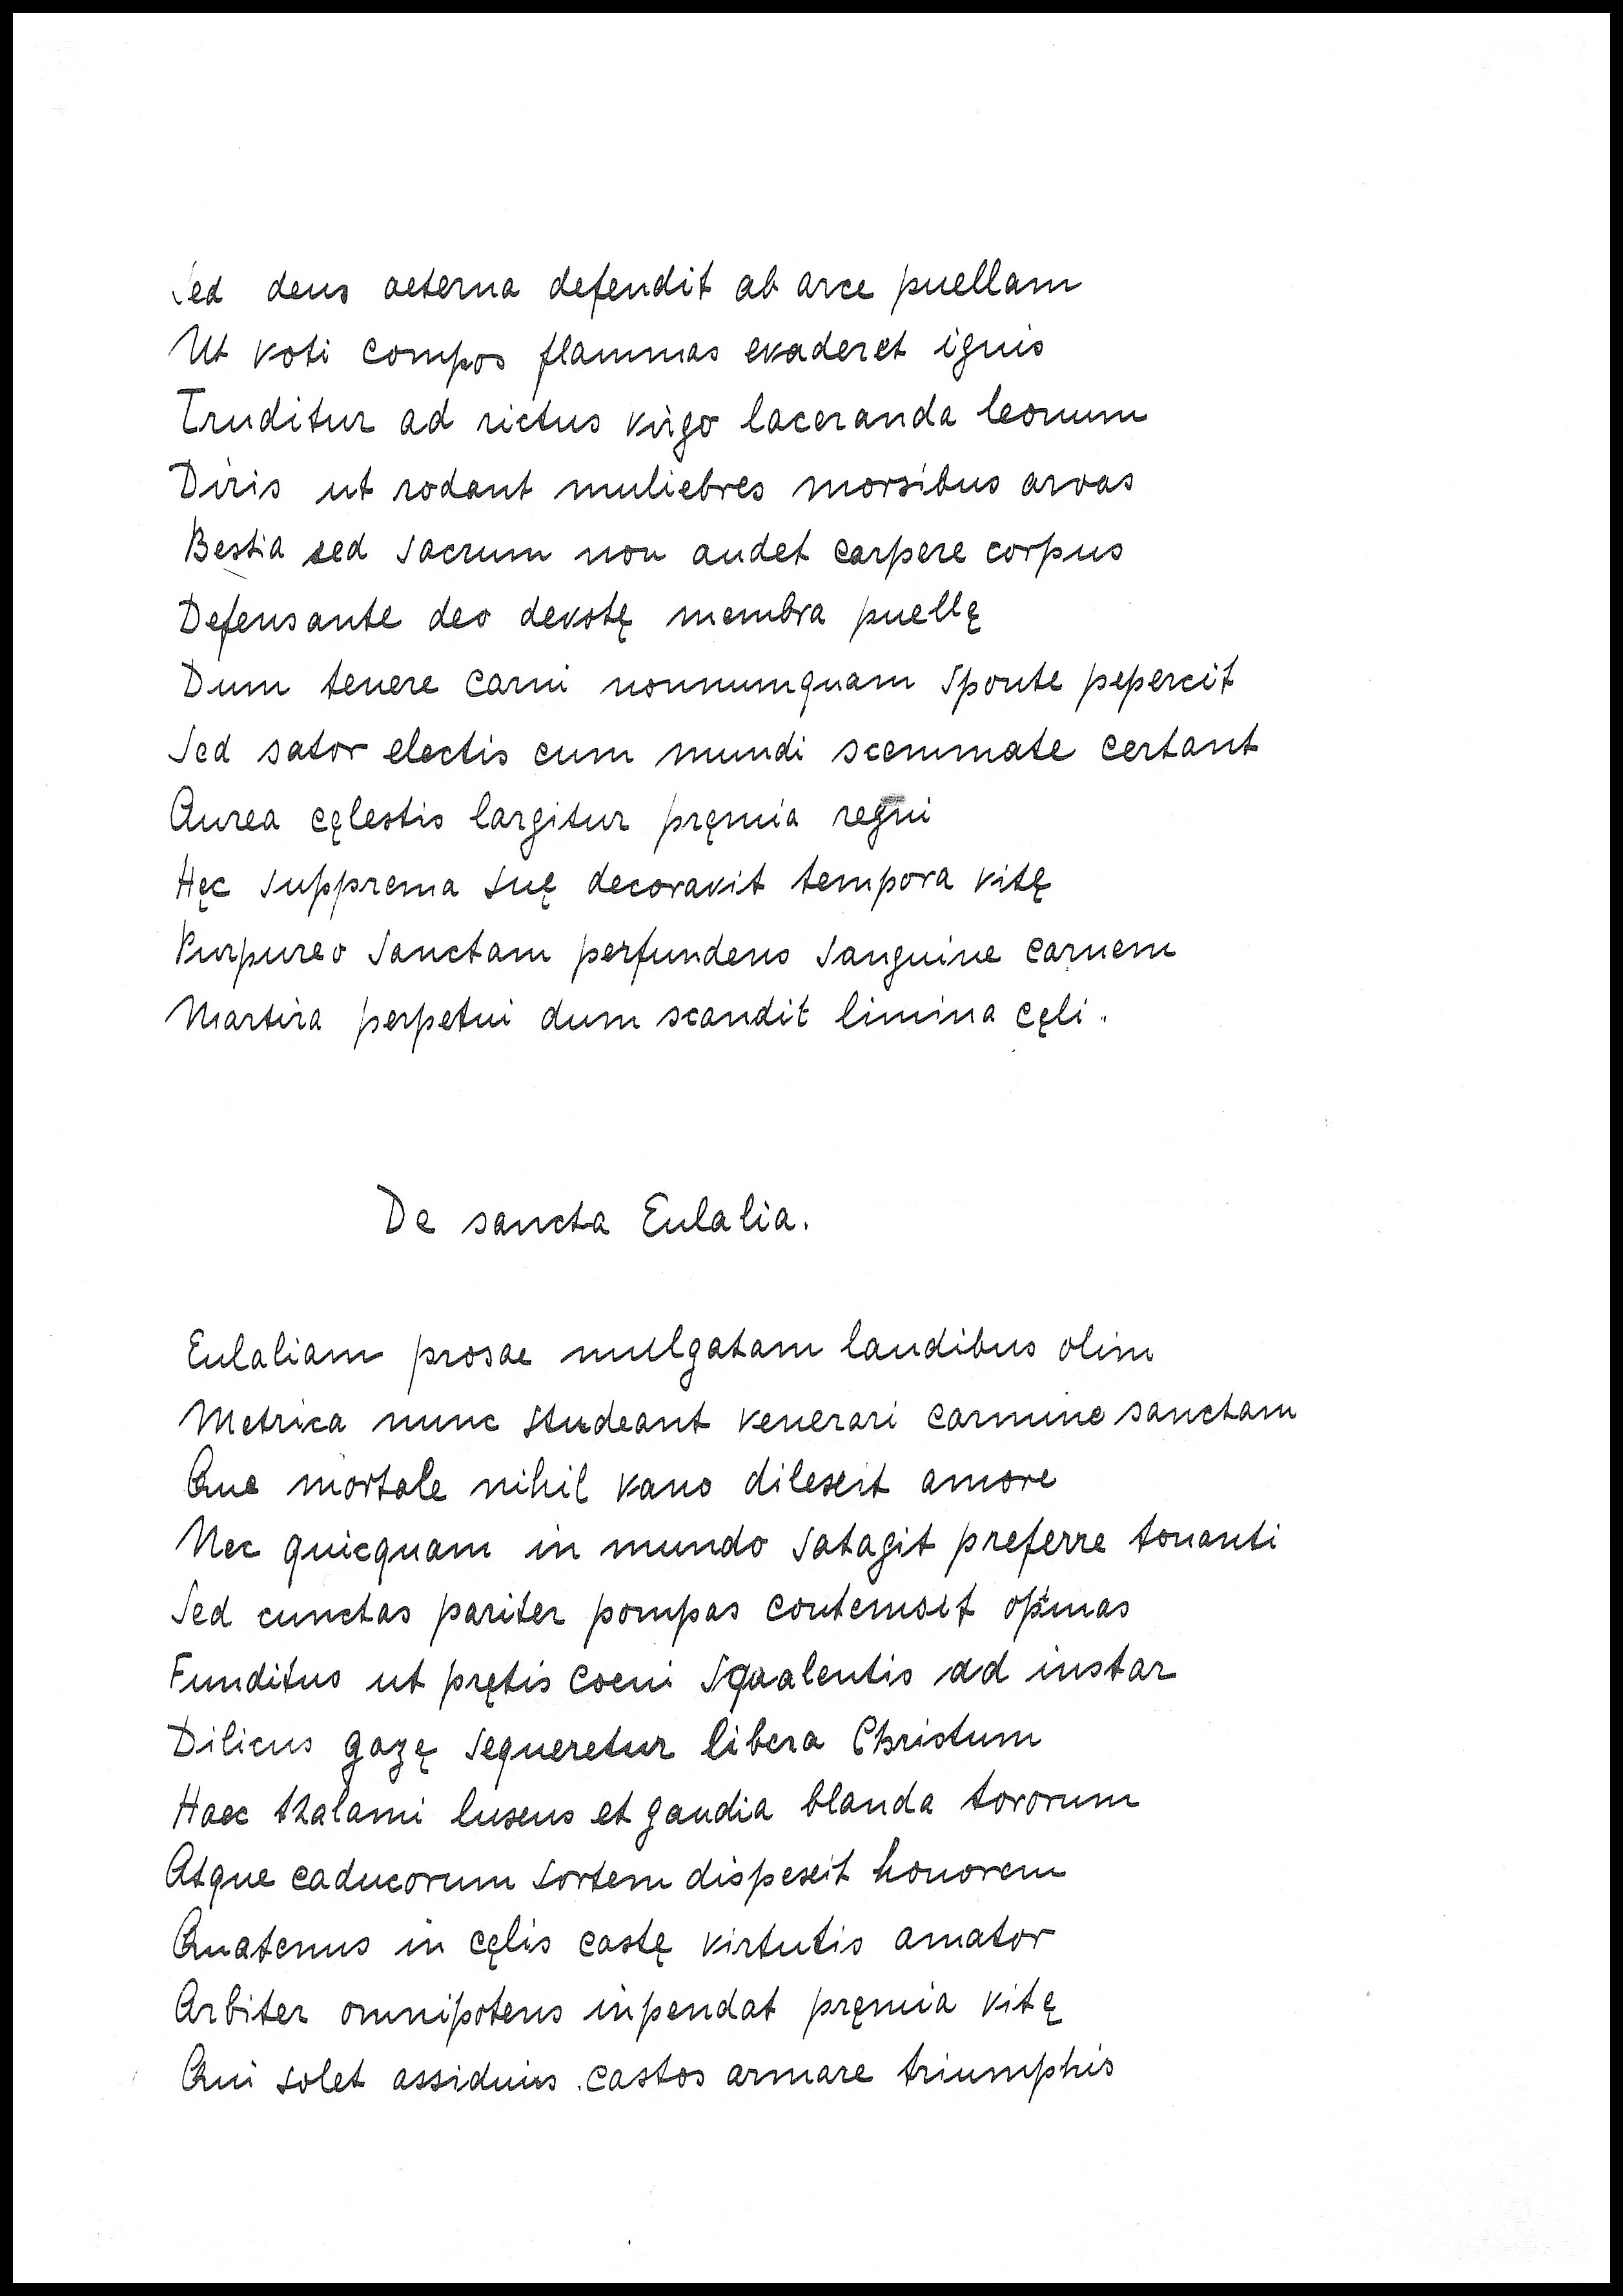 Sed deus aeterna defendit ab arce puellam
Ut voti compos flammas evaderet ignis
Truditur ad rictus virgo laceranda leonum
Diris ut rodant muliebres morsibus arvas
Bestia sed sacrum non audet carpere corpus
Defensante deo devotę membra puellę
Dum tenere carni nonnumquam sponte pepercit
Sed sator electis cum mundi scemmate certant
Aurea cęlestis largitur pręmia regni
Hęc supprema suę decoravit tempora vitę
Purpureo sanctam perfundens sanguine carnem
Martira perpetui dum scandit limina cęli.
De sancta Eulalia.
Eulaliam prosae mulgatam laudibus olim
Metrica nunc studeant venerari carmine sanctam
Que mortale nihil vano dilexit amore
Nec quicquam in mundo satagit preferre tonanti
Sed cunctas pariter pompas contemsit opimas
Funditus ut prętis coeni squalentis ad instar
Dilicus gazę sequeretur libera Christum
Haec thalami luxus et gaudia blanda tororum
Atque caducorum sortem dispexit honorem
Quatenus in cęlis castę virtutis amator
Arbiter omnipotens inpendat pręmia vitę
Qui solet assiduis castos armare triumphis